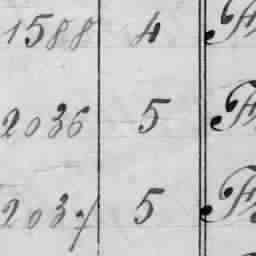 1588 4
2036 5
2037 5